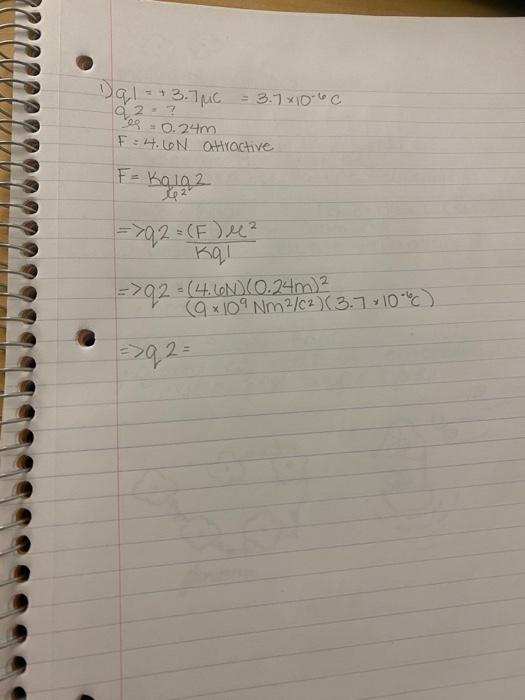 1) q1 = +3.7μC = 3.7×10⁻⁶C
q2 = ?
= 0.24m
F = 4.6N attractive
F = Kq1q2
2
=>q2 = (F) 2
Kq1
=>q2 = (4.6N)(0.24m)²
(9×10⁹ Nm²/C²)(3.7×10⁻⁶C)
=>q2 =